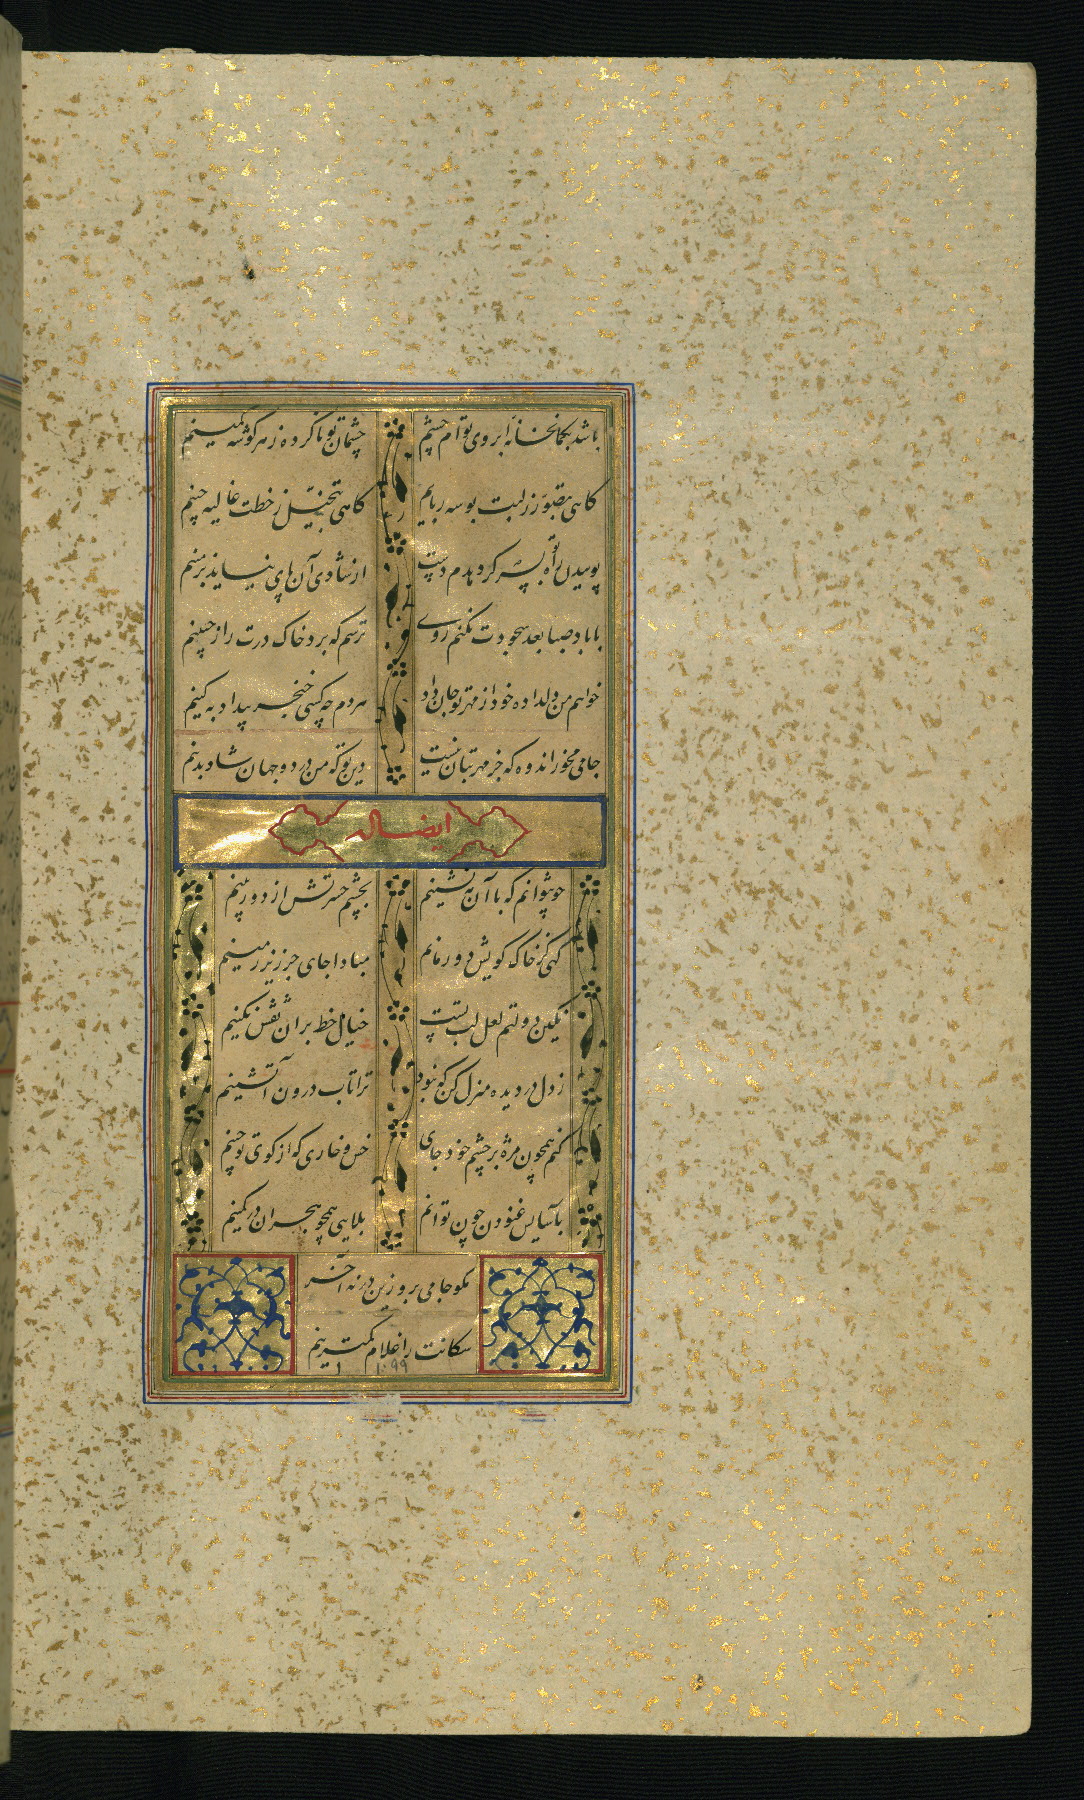 باشد بکمانخانه ابروی توام چشم چشمان تو ناکرده ز هر گوشه کمینم
گاهی بتصور ز لبت بوسه ربایم گاهی بتخیل ز خطت غالیه چینم
بوسیدن راه تو بسر کرد هم دست از شادی آن پای نیاید بزمینم
با باد صبا بعد سجودت نکنم روی ترسم که برد خاک درت را ز جبینم
خواهم من دلداده خود از مهر تو جان داد هر دم چه کشی خنجر بیداد به کینم
جامی مخور اندوه که جز مهر بتان نیست دین تو که من در دو جهان شاد بدینم
ایضا له
چو نتوانم که با آن مه نشینم بچشم حسرتش از دور بینم
گهی کز خاک کویش دور مانم مبادا جای جز زیر زمینم
نگین دولتم لعل لب تست خیال خط بران نقش نگینم
ز دل در دیده منزل کن که نبود ترا تاب درون آتشینم
کنم همچون مژه بر چشم خود جای خس و خاری که از کوی تو چینم
بآسایش غنودن چون توانم بلایی همچو هجران در کمینم
مگو جامی برو زین در نه آخر
سگانت را غلام کمترینم